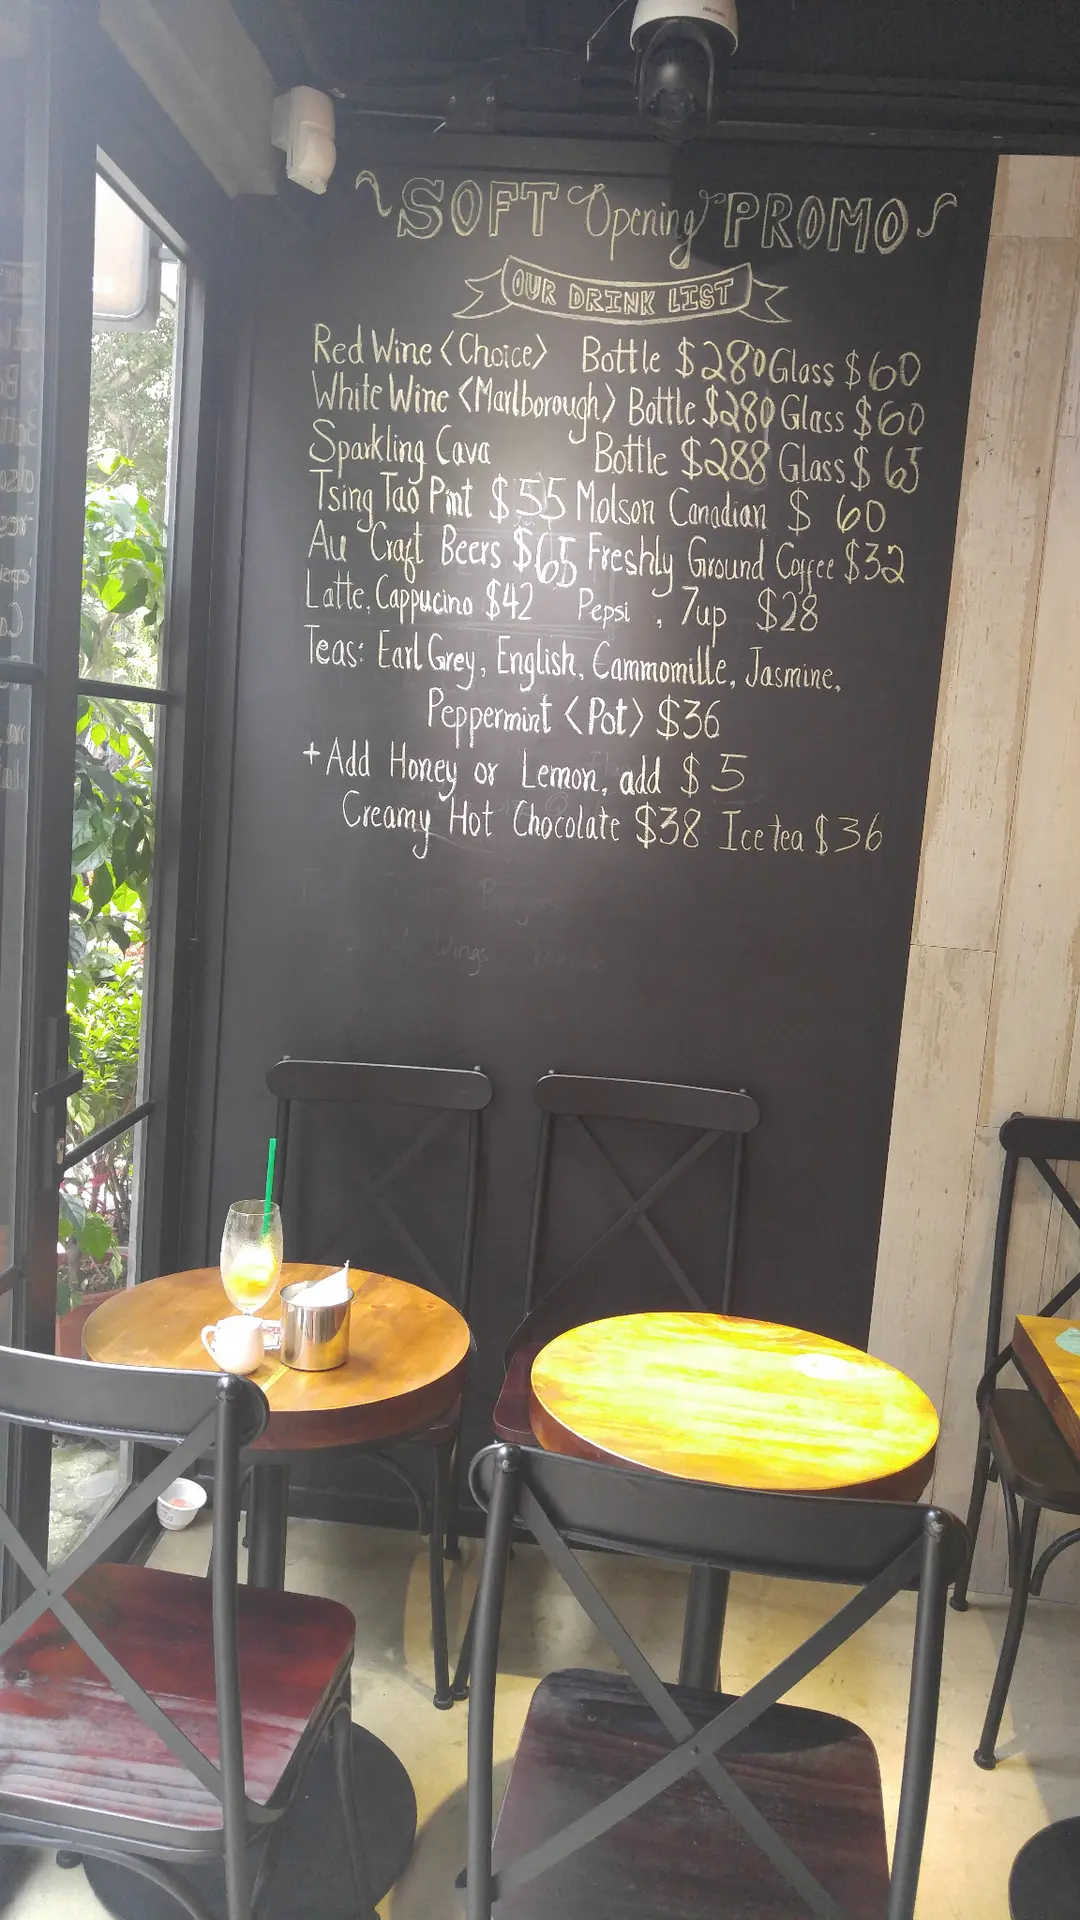 SOFT Opening PROMO
OUR DRINK LIST
Red Wine <Choice> Bottle $280 Glass $60
White Wine <Marlborough> Bottle $280 Glass $60
Sparkling Cava Bottle $288 Glass $65
Tsing Tao Pint $55 Molson Canadian $ 60
Au Craft Beers $65 Freshly Ground Coffee $32
Latte, Cappucino $42 Pepsi , 7up $28
Teas: Earl Grey, English, Cammomille, Jasmine,
Peppermint <Pot> $36
+ Add Honey or Lemon, add $ 5
Creamy Hot Chocolate $38 Ice tea $36
Wings